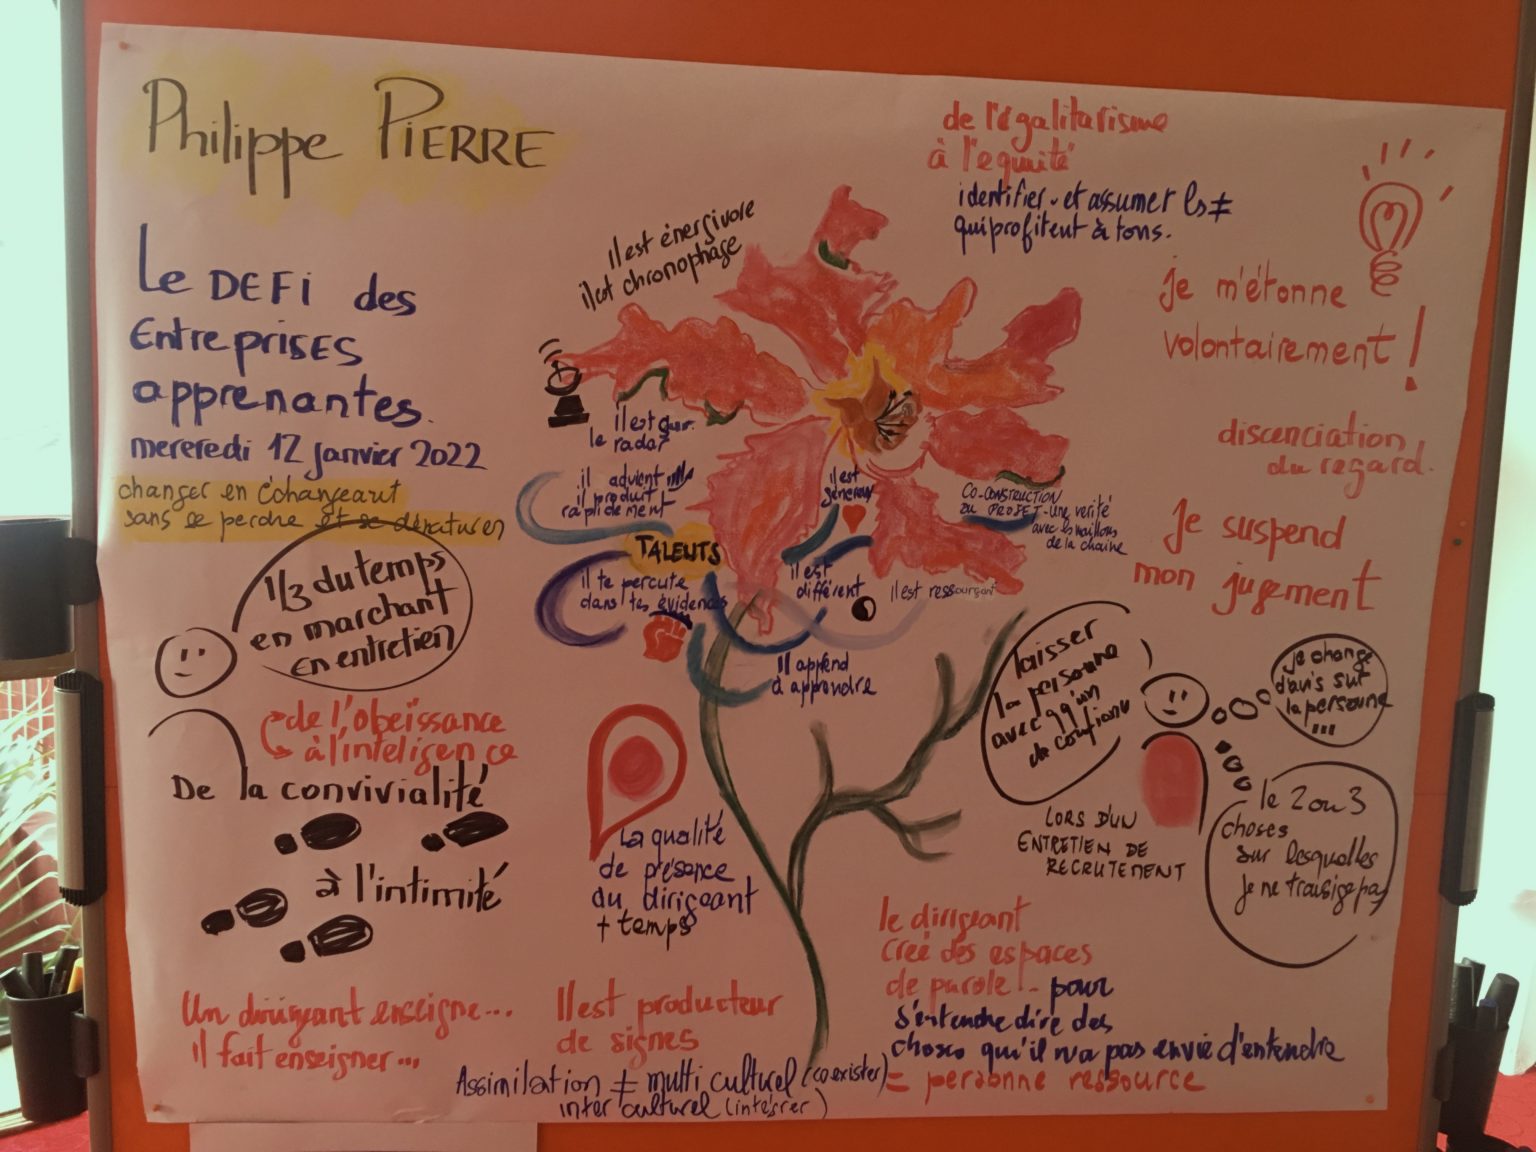 Philippe PIERRE
Le DEFi des
EntrepriSES
apprenantes.
mercredi 12 janvier 2022
changer en échangeant
sans se perdre et se dénaturer
1/3 du temps
en marchant
en entretien
de l'obeissance
à l'intelligence
De la convivialité
à l'intimité
Un dirigeant enseigne...
Il fait enseigner...
Il est énergivore
il est chronophage
il est sur
le radar
il advient
il produit
rapidement
TALENTS
il te percute
dans tes évidences
il est
généreux
il est
différent
il est ressourçant
Il apprend
à apprendre
CO-CONSTRUCTION
DU PROJET - Une vérité
avec les maillons
de la chaine
La qualité
de présence
du dirigeant
+ temps
Il est producteur
de signes
Assimilation ≠ multi culturel (coexister)
inter culturel (intégrer)
de l'égalitarisme
à l'equité
identifier et assumer les ≠
qui profitent à tous.
je m'étonne
volontairement !
du regard.
Je suspend
mon jugement
laisser
la personne
avec qq'un
de confiance
je change
d'avis sur
la personne
...
le 2 ou 3
choses
sur lesquelles
je ne transige pas
LORS D'UN
ENTRETIEN DE
RECRUTEMENT
le dirigeant
créé des espaces
de parole - pour
s'entendre dire des
choses qu'il n'a pas envie d'entendre
= personne ressource